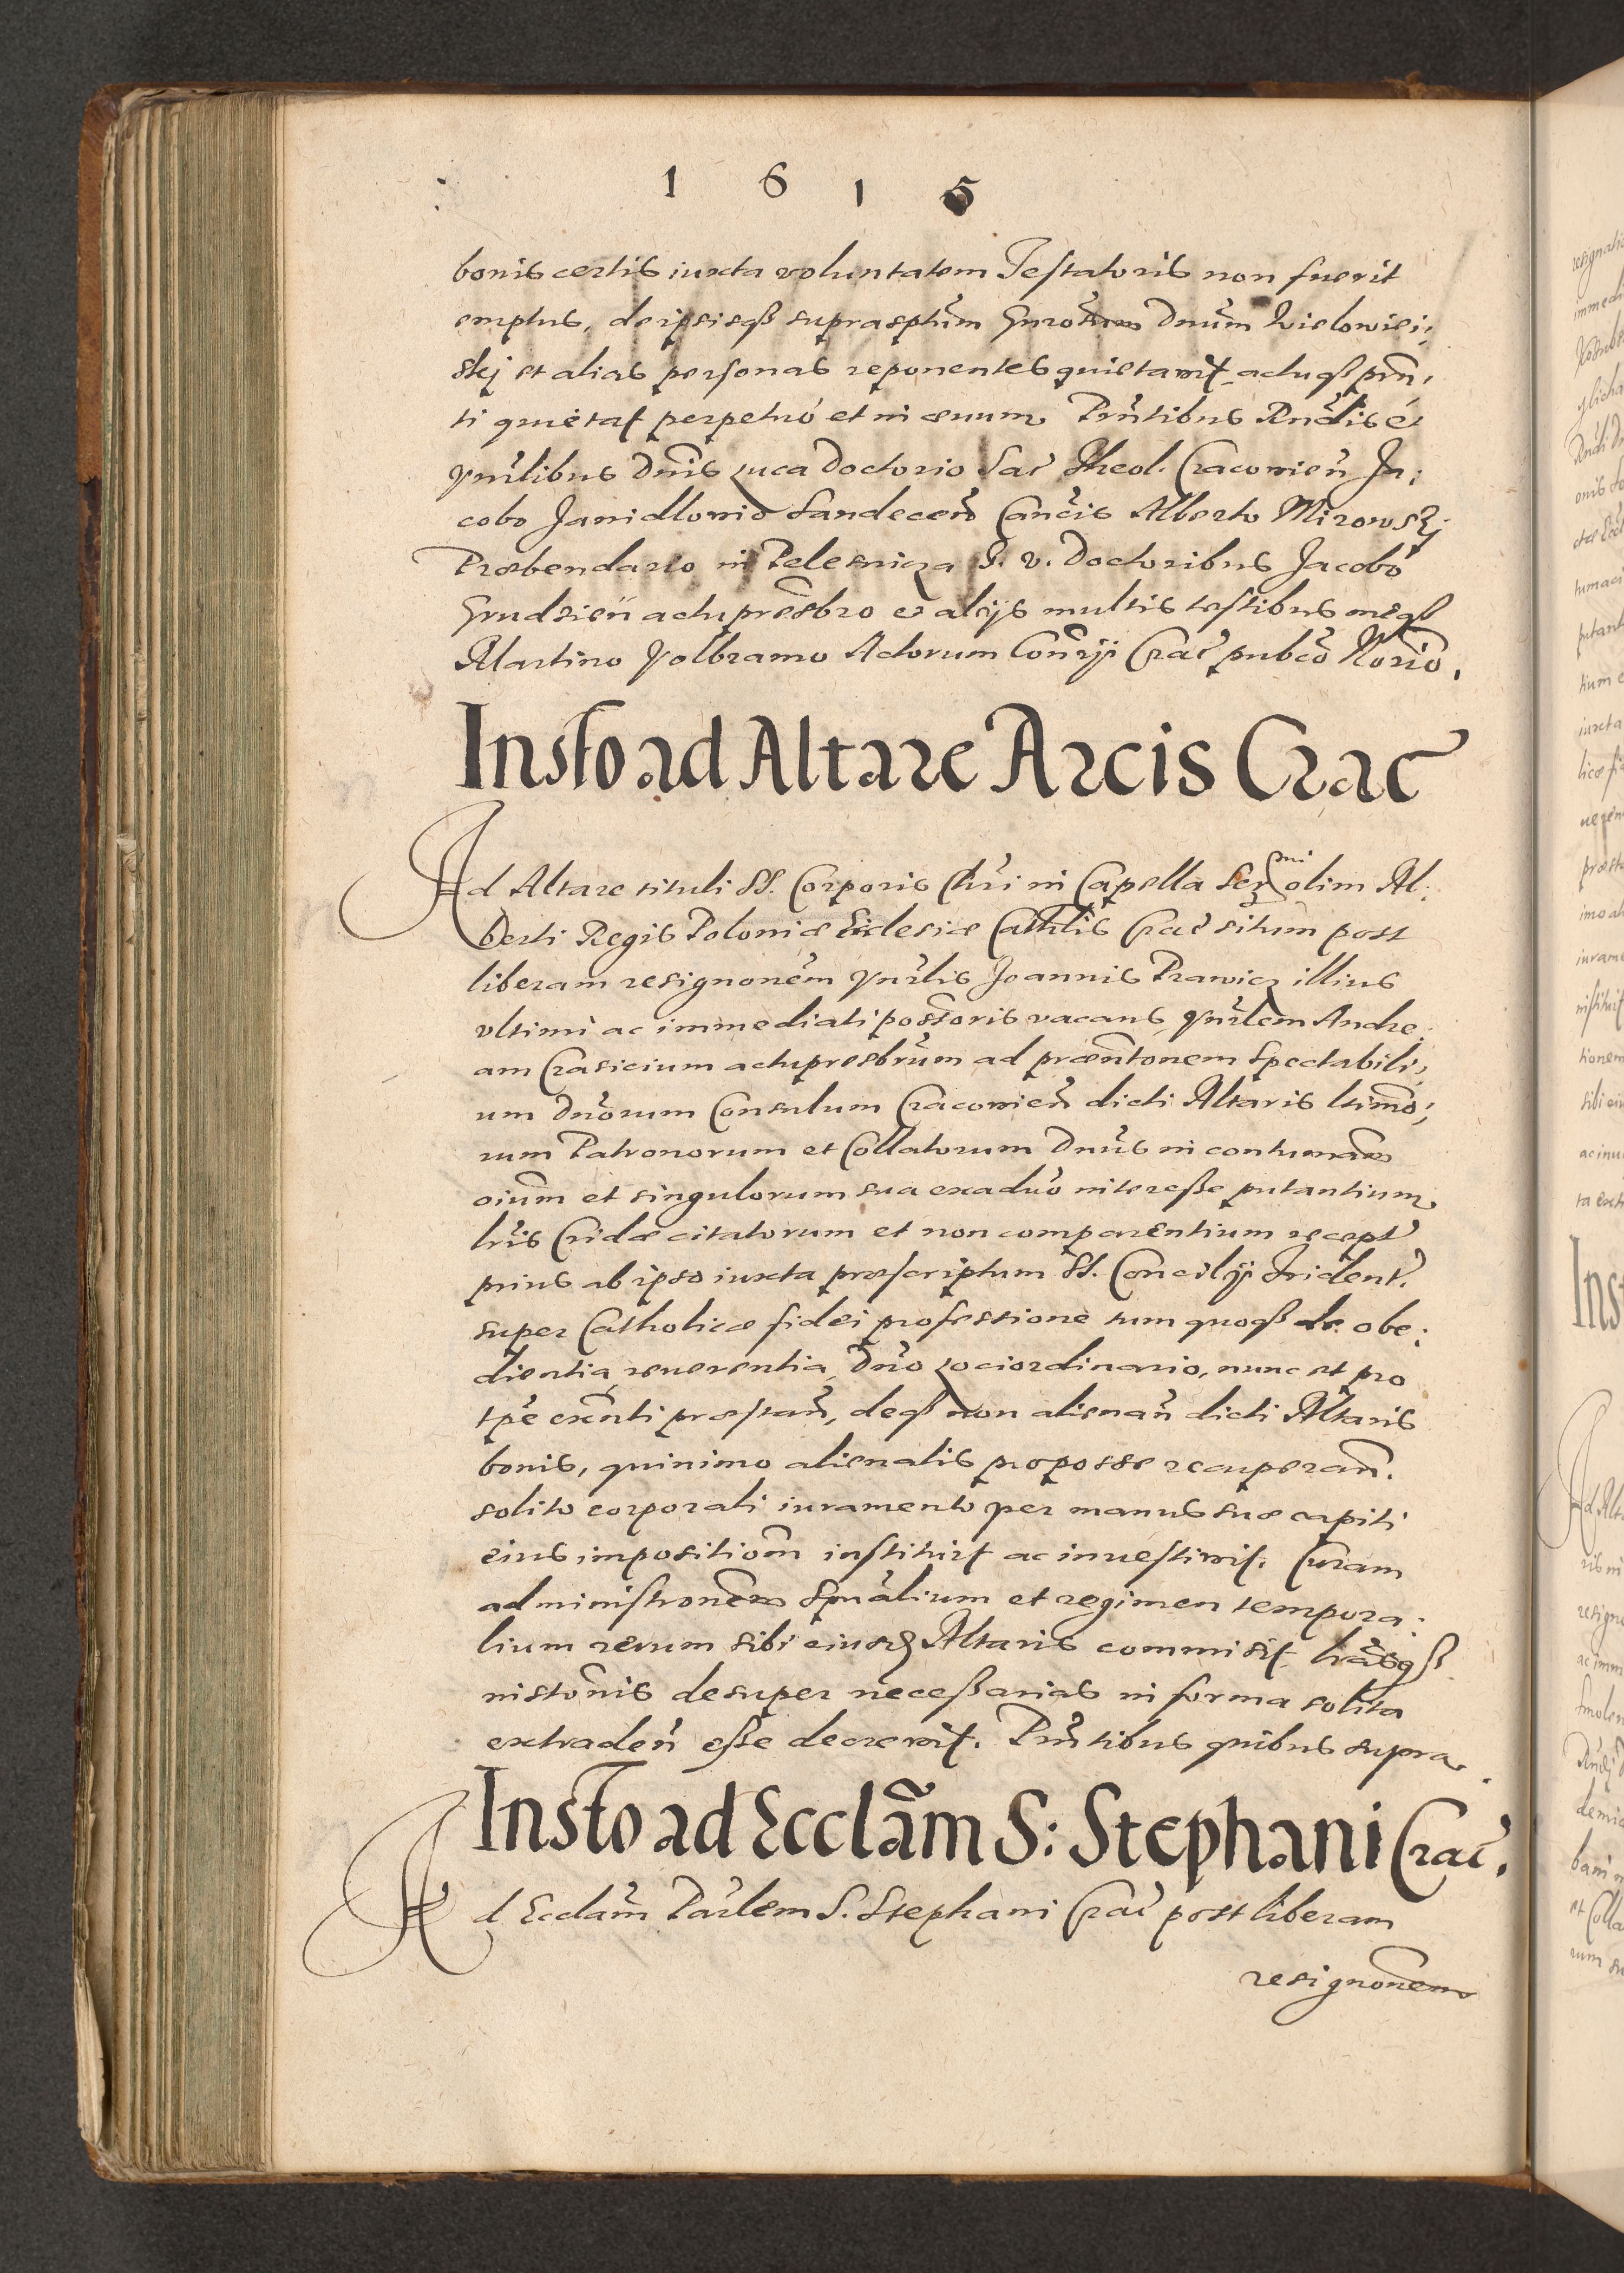 1 6 1 5
bonis certis iuxta voluntatem Testatoris non fuerit
emptus, de ipsisqß suprasptum Gnrosum Dnum Wielowiei;
skj et alias personas reponentes quietavit actuqß prn,
ti quietat perpetuò et in aevum. Prntibus Rndis et
Vnrlibus Dnis Luca Doctorio Sac Theol. Cracovien Ja;
cobo Janidlovio Sandecen Cancis Alberto Mirowskj
Praebendario in Pelesnica I. V. Doctoribus Jacobo
Grudzien actupresbro et alijs multis testibus meqß
Martino Volbramo Actorum Consrij Crac pubco Norio.
Insto ad Altare Arcis Crac
Ad Altare tituli SS. Corporis Chri in Capella Ser mi olim Al:
berti Regis Poloniae Ecclesiae Cathlis Crac situm post
liberam resignonem Vnrlis Joannis Prawicz illius
vltimi ac immediati possoris vacans Vnrlem Andre:
am Crasicium actupresbrum ad praentonem Spectabili;
um Dnorum Consulum Cracovien dicti Altaris ltimo;
rum Patronorum et Collatorum Dnus in contumam
oium et singulorum sua exaduo interesse putantium
lris Cridae citatorum et non comparentium recept
prius ab ipso iuxta praescriptum SS. Concilij Trident.
super Catholicae fidei professione tum quoqß de obe:
dientia reuerentia Dno Lociordinario, nunc et pro
tpe exnti praestan, deqß non alienan dicti Altaris
bonis, quinimo alienatis pro posse recuperan.
solito corporali iuramento per manus suae capiti
eius impositiom instituit ac inuestivit. Curam
administronem Spualium et regimen tempora:
lium rerum sibi eiusd Altaris commisit lrasqß
nistonis desuper necessarias in forma solita
extraden esse decrevit. Prntibus quibus supra.
Insto ad Ecclam S: Stephani Crac.
Ad Ecclam Parlem S. Stephani Crac post liberam
resignonem